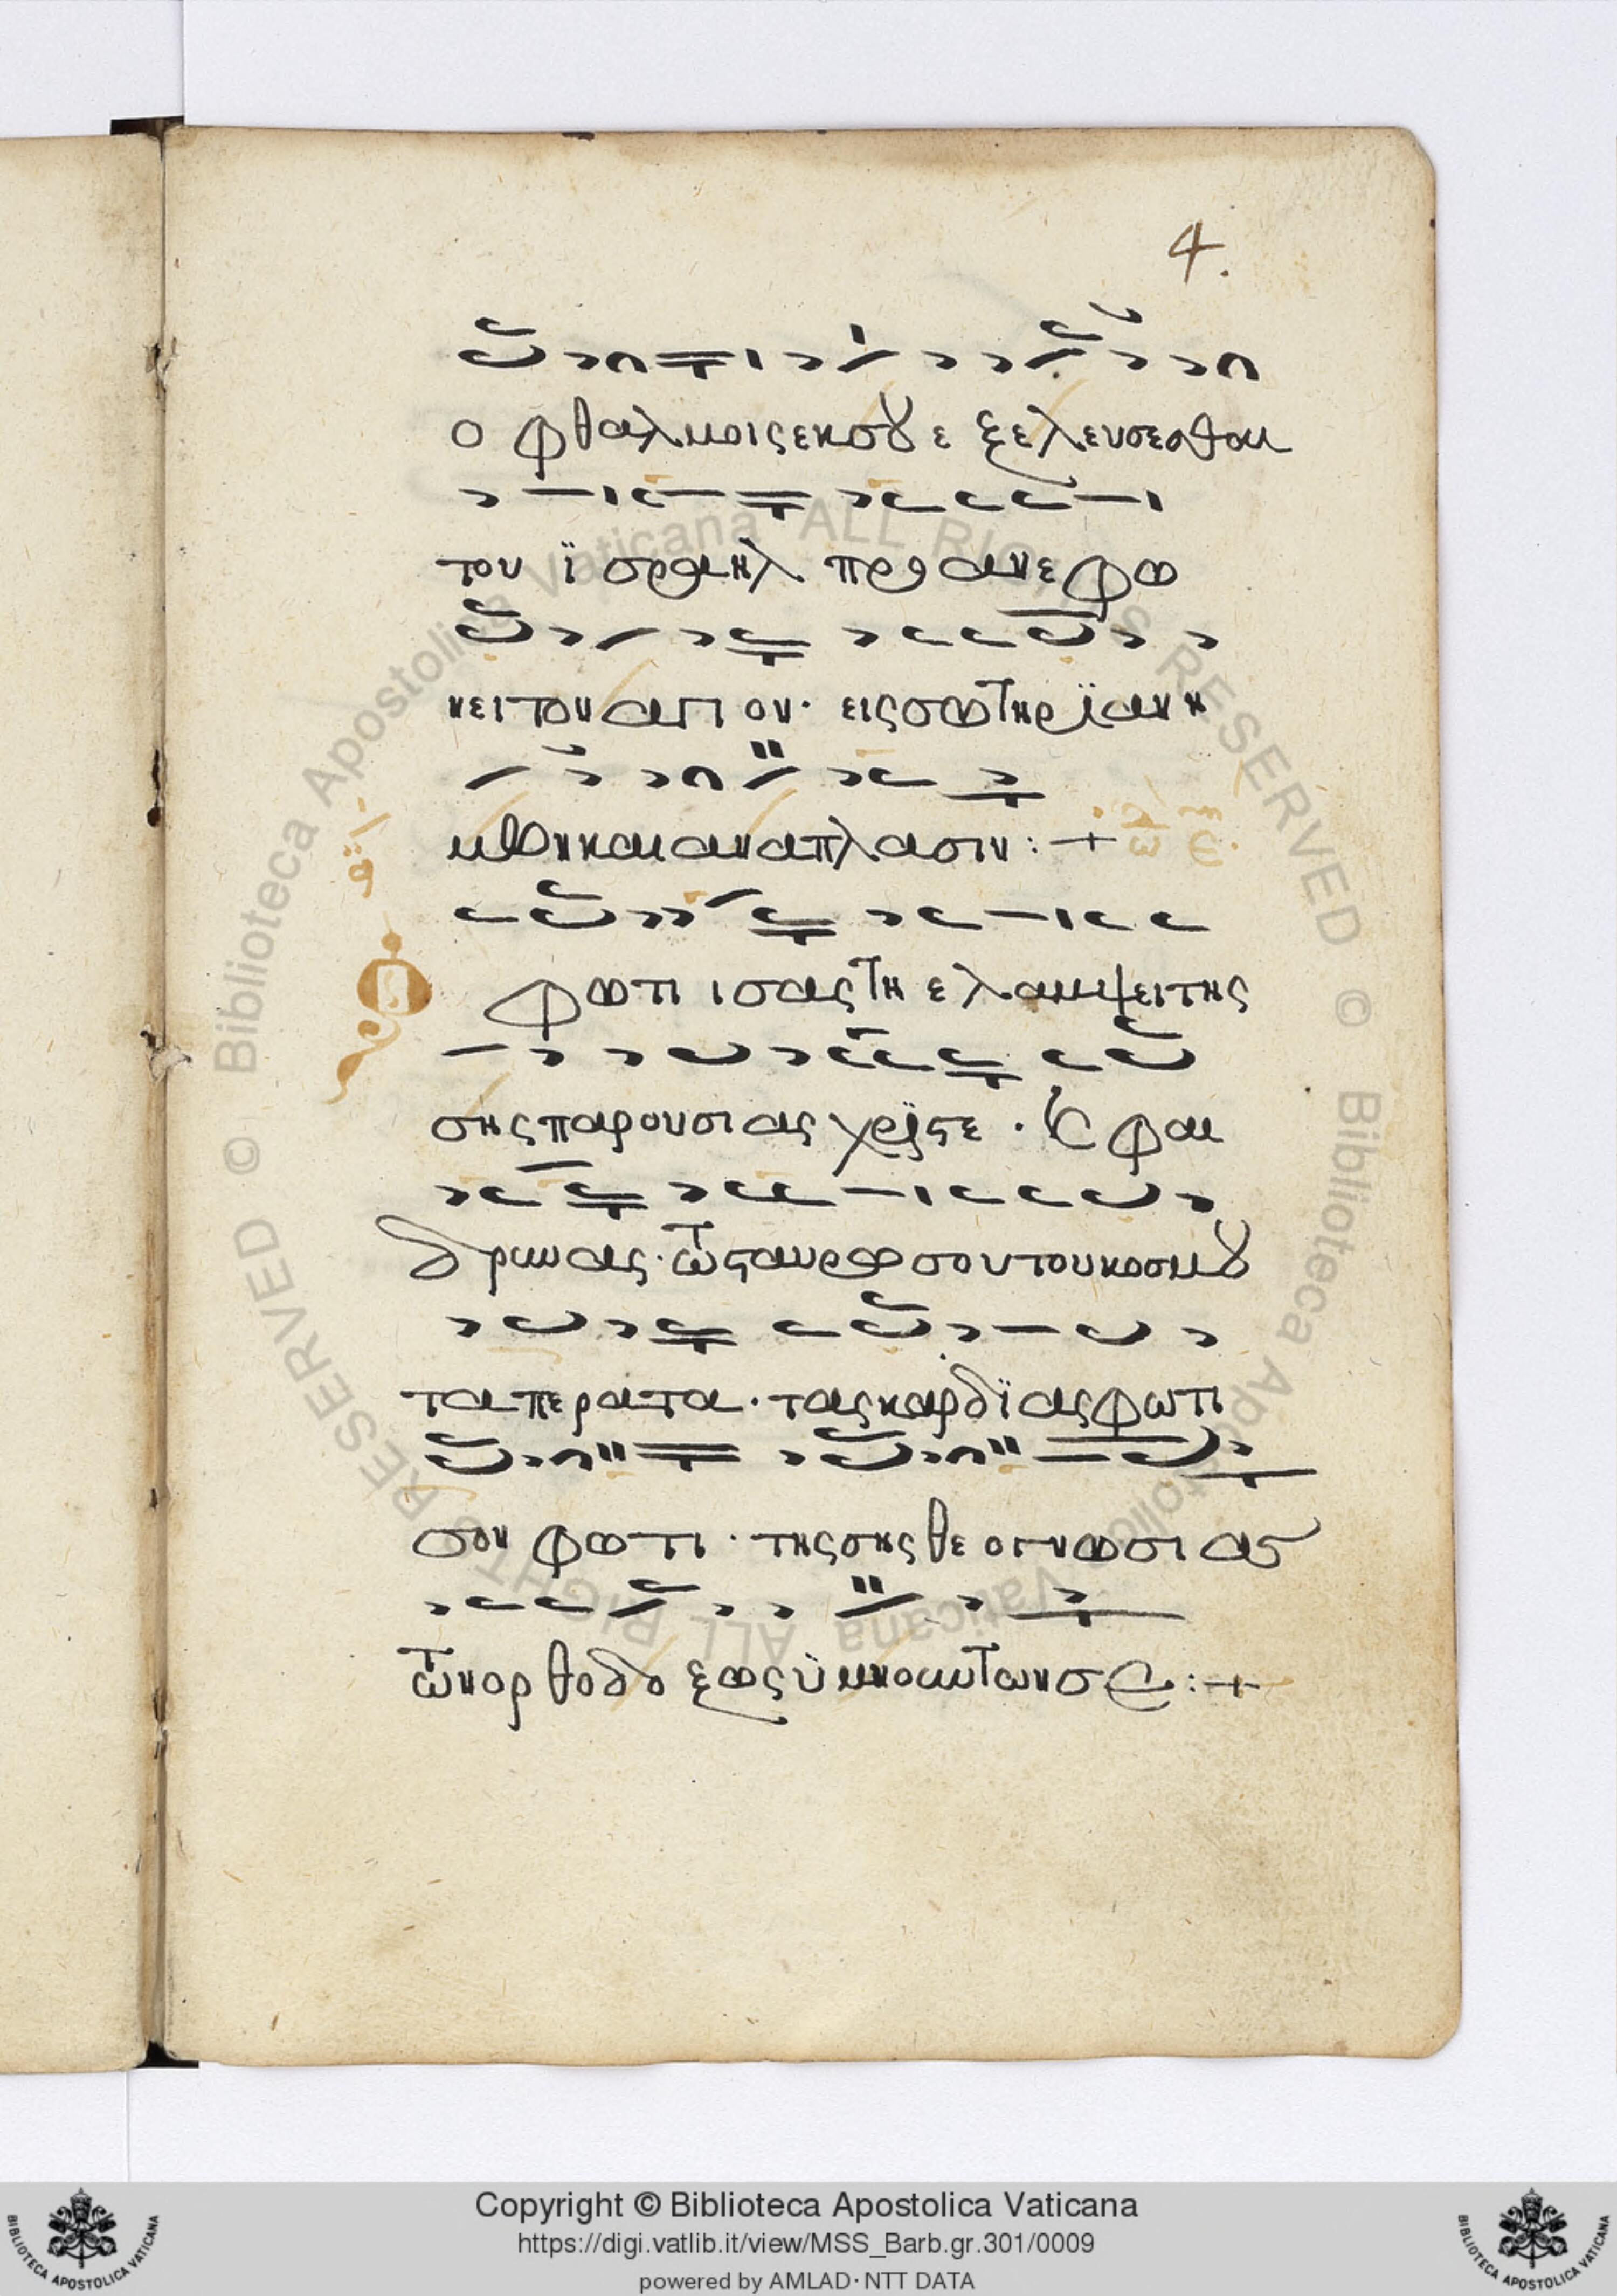 4.
ο φθαλμοις εκ σου εξελευσεσθαι
τον ϊσραηλ προανεφω
νει τον αγιον· εις σωτηρϊαν η
μων και αναπλασιν :+
φωτιισας τη ελλαμψει της
σης παρουσιας χριστε · και φαι
δρυνας· τω σταυρω σου του κοσμου
τα περατα · τας καρδϊας φωτι
σον φωτι · της σης θεογνωσιας
των ορθοδοξως ϋμνουντων σε :+
Copyright © Biblioteca Apostolica Vaticana
https://digi.vatlib.it/view/MSS_Barb.gr.301/0009
powered by AMLAD · NTT DATA
© Biblioteca Apostolica Vaticana ALL RIGHTS RESERVED
© Biblioteca Apostolica Vaticana ALL RIGHTS RESERVED
BIBLIOTECA APOSTOLICA VATICANA
BIBLIOTECA APOSTOLICA VATICANA